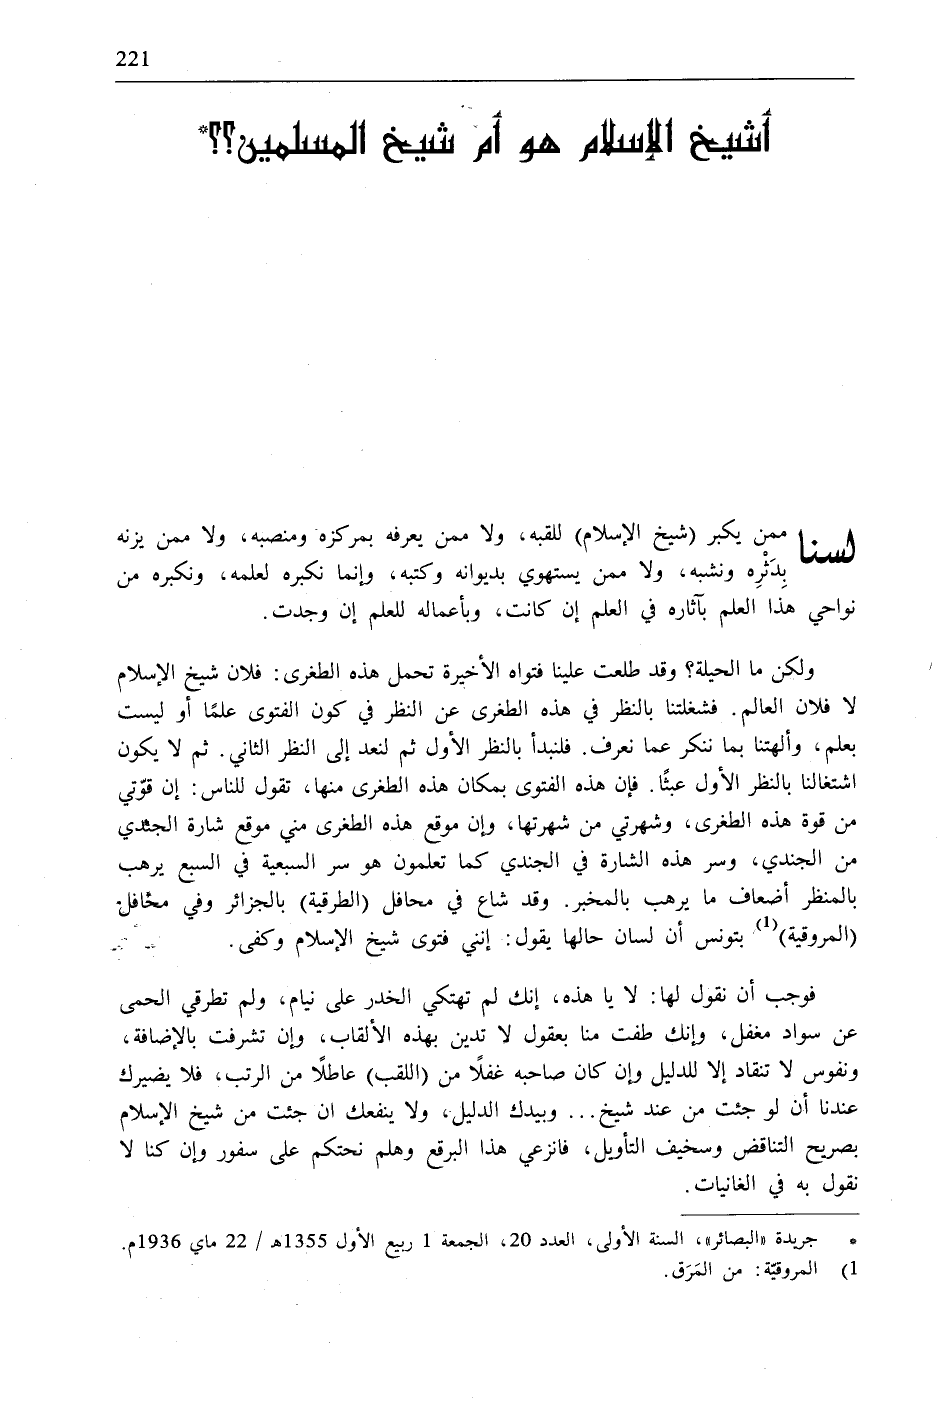 221
أشيخ الإسلام هو أم شيخ المسلمين؟؟*
لسنا ممن يكبر (شيخ الإسلام) للقبه، ولا ممن يعرفه بمركزه ومنصبه، ولا ممن يزنه
بِدَثْرِه ونشبه، ولا ممن يستهوي بديوانه وكتبه، وإنما نكبره لعلمه، ونكبره من
نواحي هذا العلم بآثاره في العلم إن كانت، وبأعماله للعلم إن وجدت.
ولكن ما الحيلة؟ وقد طلعت علينا فتواه الأخيرة تحمل هذه الطغرى: فلان شيخ الإسلام
لا فلان العالم. فشغلتنا بالنظر في هذه الطغرى عن النظر في كون الفتوى علمًا أو ليست
بعلم، وألهتنا بما ننكر عما نعرف. فلنبدأ بالنظر الأول ثم لنعد إلى النظر الثاني. ثم لا يكون
اشتغالنا بالنظر الأول عبثًا. فإن هذه الفتوى بمكان هذه الطغرى منها، تقول للناس: إن قوّتي
من قوة هذه الطغرى، وشهرتي من شهرتها، وإن موقع هذه الطغرى مني موقع شارة الجندي
من الجندي، وسر هذه الشارة في الجندي كما تعلمون هو سر السبعية في السبع يرهب
بالمنظر أضعاف ما يرهب بالمخبر. وقد شاع في محافل (الطرقية) بالجزائر وفي محافل
(المروقية)(1) بتونس أن لسان حالها يقول: إنني فتوى شيخ الإسلام وكفى.
فوجب أن نقول لها: لا يا هذه، إنك لم تهتكي الخدر على نيام، ولم تطرقي الحمى
عن سواد مغفل، وإنك طفت منا بعقول لا تدين بهذه الألقاب، وإن تشرفت بالإضافة،
ونفوس لا تنقاد إلا للدليل وإن كان صاحبه غفلًا من (اللقب) عاطلًا من الرتب، فلا يضيرك
عندنا أن لو جئت من عند شيخ... وبيدك الدليل، ولا ينفعك ان جئت من شيخ الإسلام
بصريح التناقض وسخيف التأويل، فانزعي هذا البرقع وهلم نحتكم على سفور وإن كنا لا
نقول به في الغانيات.
* جريدة «البصائر»، السنة الأولى، العدد 20، الجمعة 1 ربيع الأول 1355هـ / 22 ماي 1936م.
1) المروقيّة: من المَرَق.